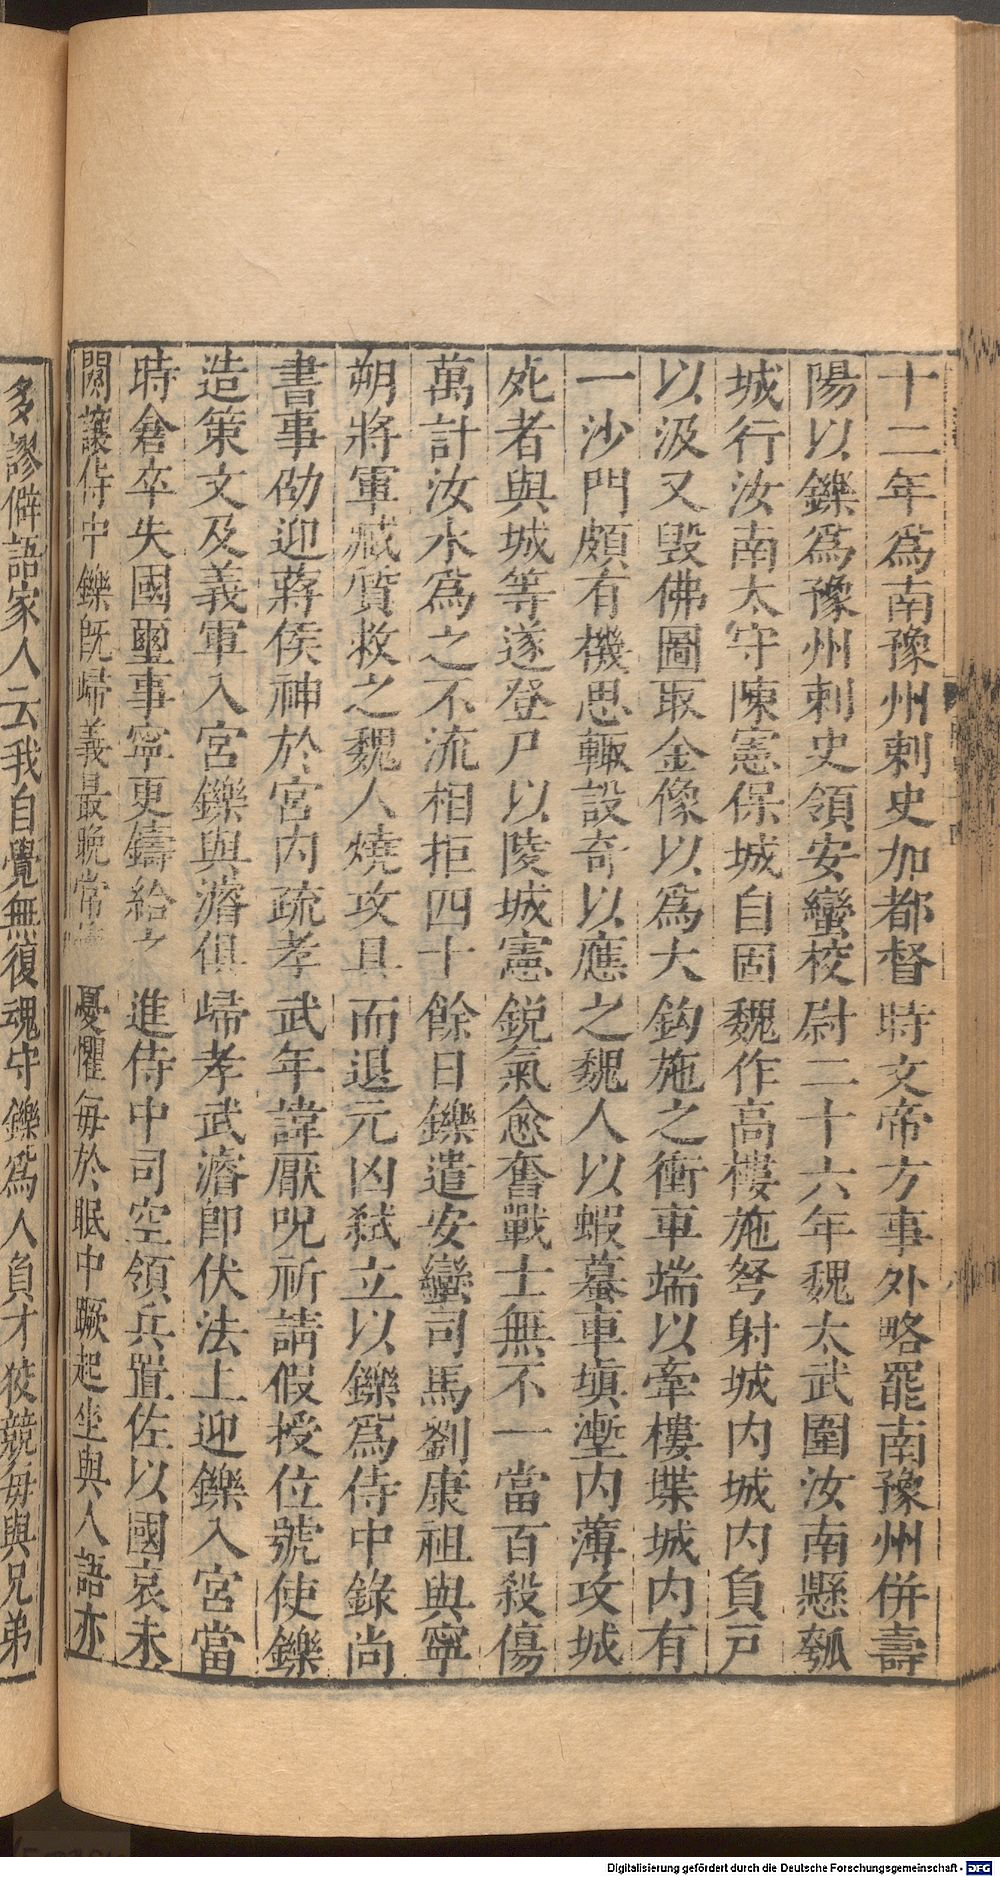 十二年爲南豫州刺史加都督時文帝方事外略罷南豫州併壽
陽以鑠爲豫州刺史領安蠻校尉二十六年魏太武圍汝南懸瓠
城行汝南太守陳憲保城自固魏作高樓施弩射城内城内負戸
以汲又毀佛圖取金像以爲大鈎施之衝車端以牽樓堞城内有
一沙門頗有機思輙設奇以應之魏人以蝦蟇車塡壍内薄攻城
死者與城等遂登尸以陵城憲鋭氣愈奮戰士無不一當百殺傷
萬計汝水爲之不流相拒四十餘日鑠遣安蠻司馬劉康祖與寧
朔將軍臧質救之魏人燒攻具而退元凶弑立以鑠爲侍中錄尚
書事劭迎蔣侯神於宮内疏孝武年諱厭呪祈請假授位號使鑠
造策文及義軍入宮鑠與濬俱歸孝武濬卽伏法上迎鑠入宮當
時倉卒失國璽事寧更鑄給之進侍中司空領兵置佐以國哀未
闋讓侍中鑠旣歸義最晚常憂懼每於眠中蹶起坐與人語亦
多謬僻語家人云我自覺無復魂守鑠爲人負才狡競每與兄弟
Digitalisierung gefördert durch die Deutsche Forschungsgemeinschaft - DFG